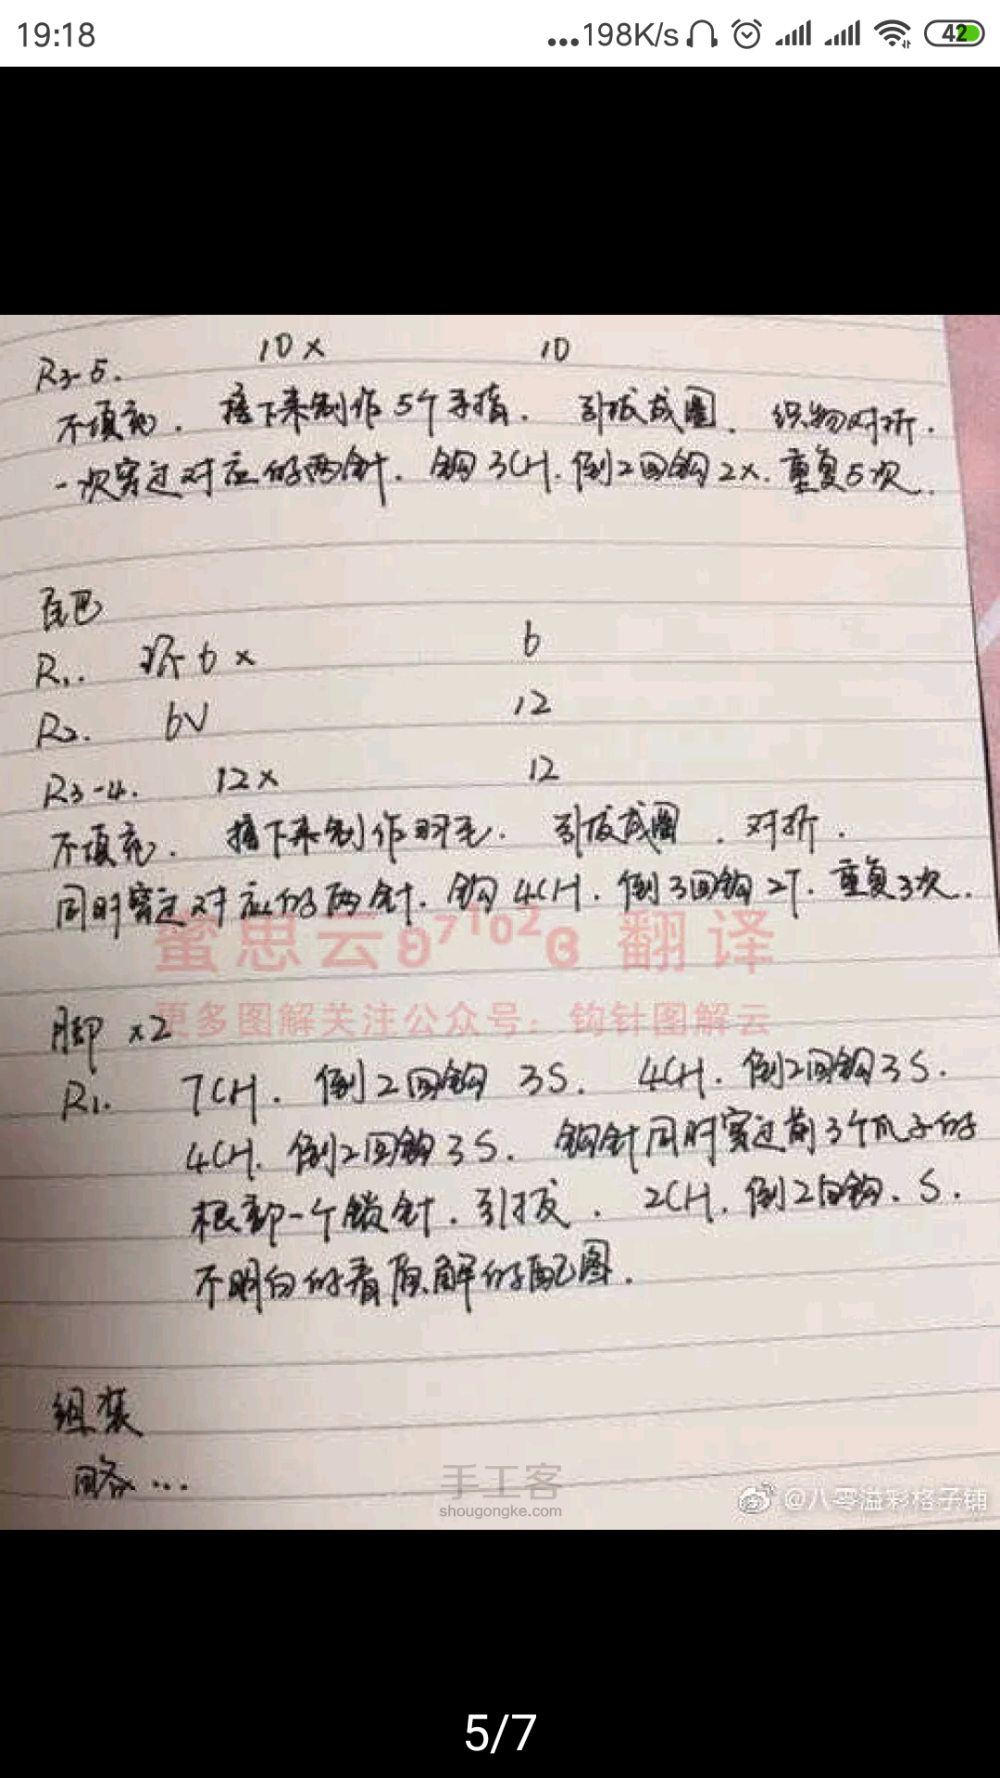 19:18
...198K/s
42
R3-5. 10X 10
不填充. 接下来制作5个手指. 引拔成圈. 织物对折.
一次穿过对应的两针. 钩3CH. 倒2回钩2X. 重复5次.
尾巴
R1. 环6X 6
R2. 6V 12
R3-4. 12X 12
不填充. 接下来制作羽毛. 引拔成圈. 对折.
同时穿过对应的两针. 钩4CH. 倒3回钩2T. 重复3次.
蜜思云 翻译
更多图解关注公众号：钩针图解云
脚 X2
R1. 7CH. 倒2回钩 3S. 4CH. 倒2回钩3S.
4CH. 倒2回钩3S. 钩针同时穿过前3个爪子的
根部一个锁针. 引拔. 2CH. 倒2回钩. S.
不明白的看原图解的配图.
组装
略...
手工客
shougongke.com
@八零溢彩格子铺
5/7